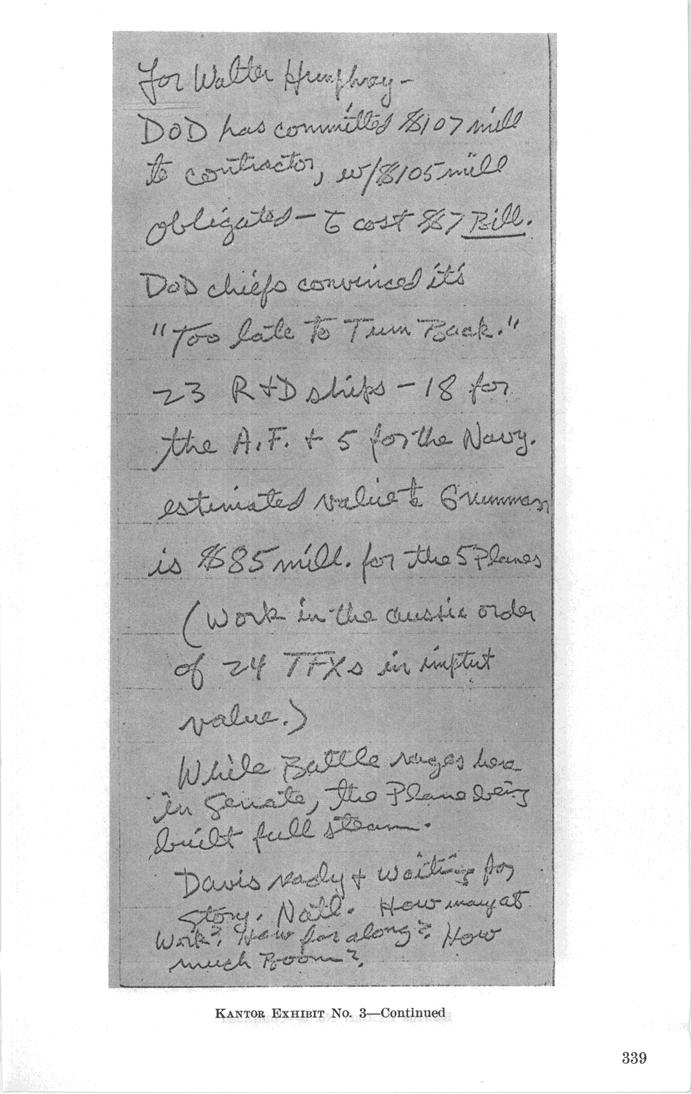 for Walter Humphrey –
DoD has committed $107 mill
to contractor, w/$105 mill
obligated – to cost $7 Bill.
DoD chiefs convinced it's
"Too late to Turn Back."
23 R+D ships – 18 for
the A.F. + 5 for the Navy.
estimated value to Grumman
is $85 mill. for the 5 Planes
(Work in the aussie order
of 24 TFXs in
value.)
While Battle rages here
in Senate, the Plane being
built full steam.
Davis ready + waiting for
story. Natl. How many at
Work? How far along? How
much Room?
KANTOR EXHIBIT No. 3—Continued
339